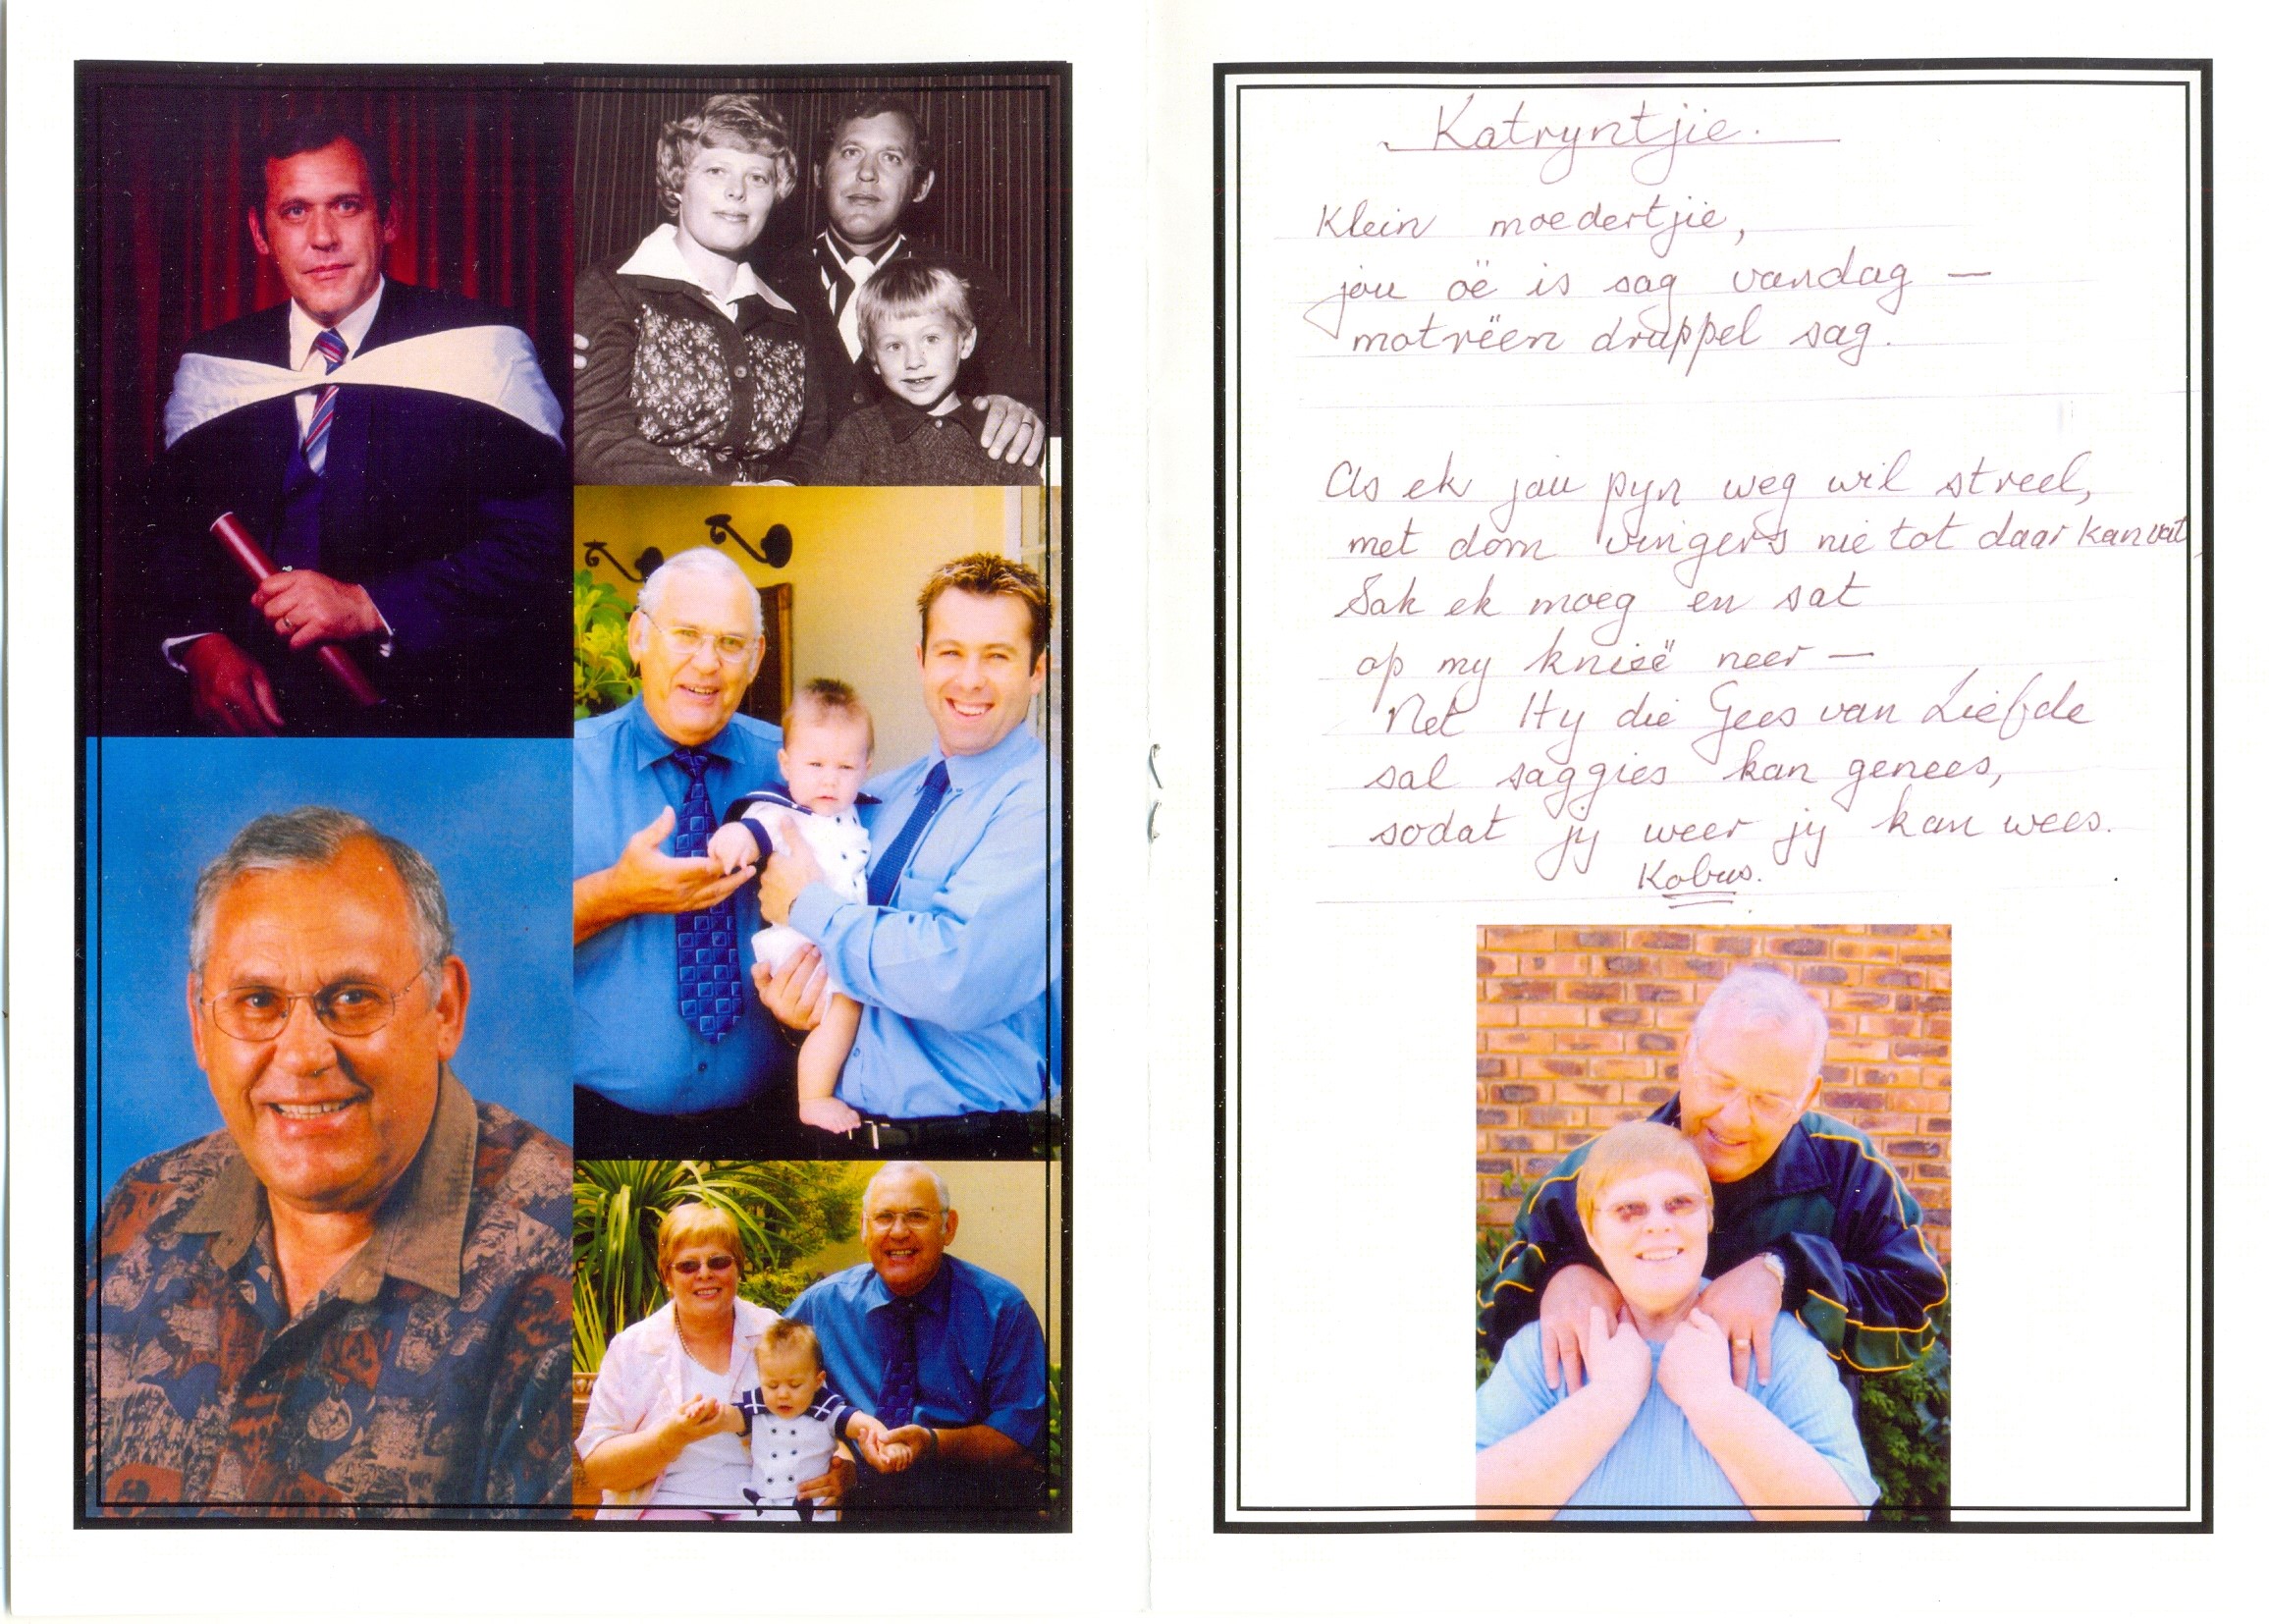 Katryntjie.
Klein moedertjie,
jou oë is sag vandag —
motreën druppel sag.
As ek jou pyn weg wil streel,
met dom vingers nie tot daar kan vat,
Sak ek moeg en sat
op my knieë neer —
Net Hy die Gees van Liefde
sal saggies kan genees,
sodat jy weer jy kan wees.
Kobus.